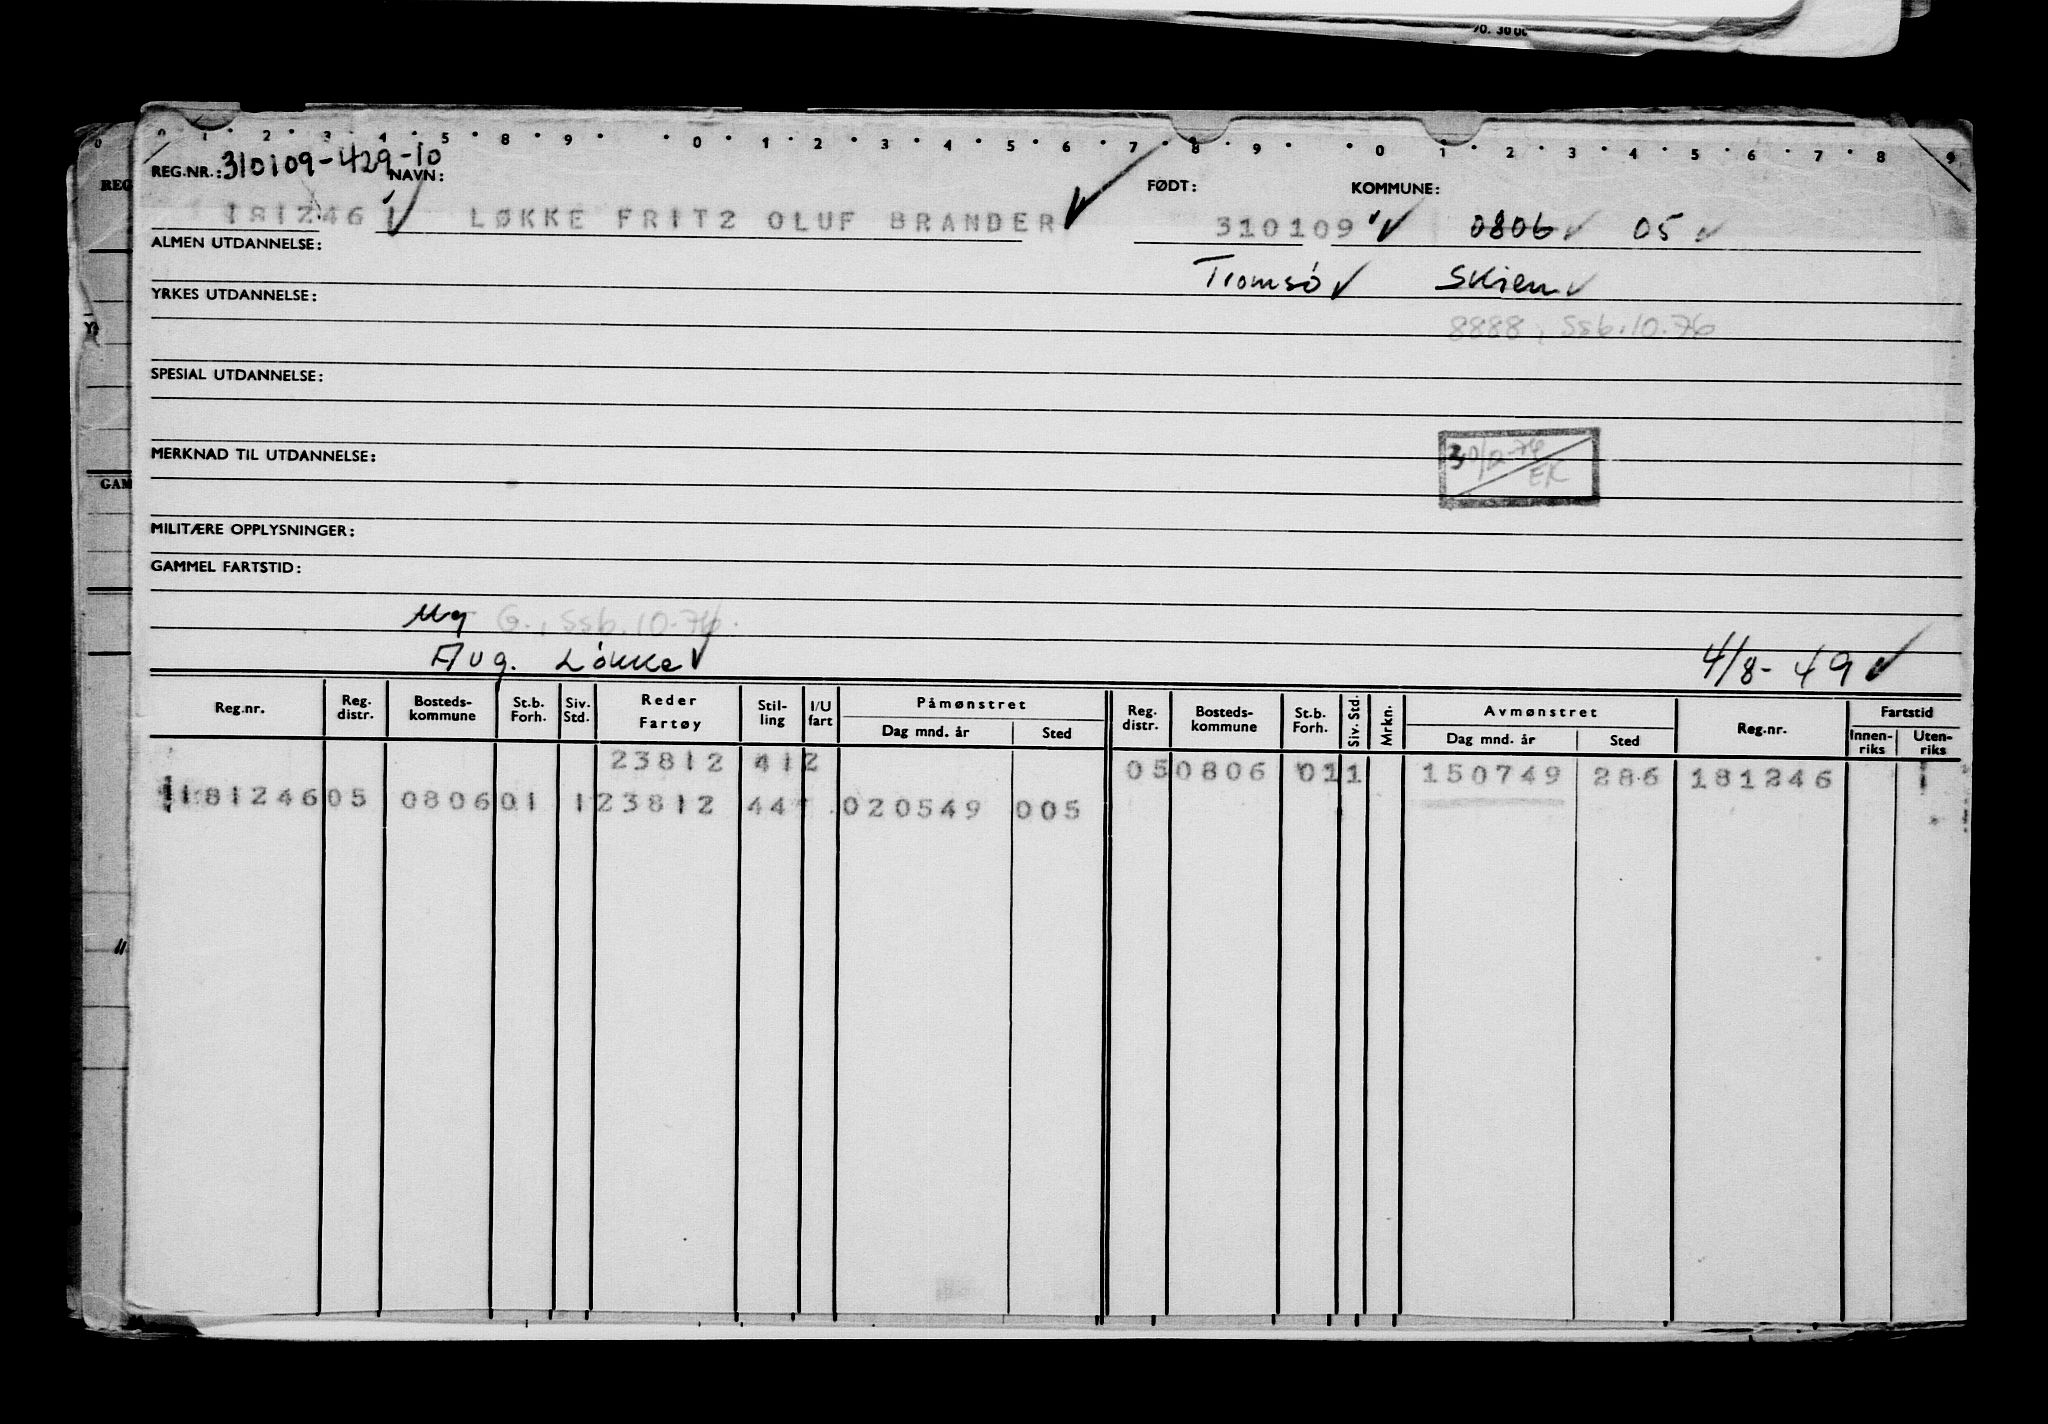 70. 3000
0 1 2 3 4 5 8 9 0 1 2 3 4 5 6 7 8 9 0 1 2 3 4 5 6 7 8 9
REG.NR.: 310109-429-10 NAVN: FØDT: KOMMUNE:
181246 1 LØKKE FRITZ OLUF BRANDER 310109 0806 05
ALMEN UTDANNELSE: Tromsø Skien
YRKES UTDANNELSE:
8888, Ssb.10.76
SPESIAL UTDANNELSE:
MERKNAD TIL UTDANNELSE:
EK
MILITÆRE OPPLYSNINGER:
GAMMEL FARTSTID:
Mg G., Ssb.10.76.
Aug. Løkke 4/8-49
Reg.nr. Reg. distr. Bosteds-kommune St.b. Forh. Siv. Std. Reder Fartøy Stil-ling I/U fart Påmønstret Dag mnd. år Sted Reg. distr. Bosteds-kommune St.b. Forh. Siv. Std. Mrkn. Avmønstret Dag mnd. år Sted Reg.nr. Fartstid Innen-riks Uten-riks
23812 412 05 0806 01 1 150749 286 181246
181246 05 0806 01 1 23812 44 020549 005
REG
GAM